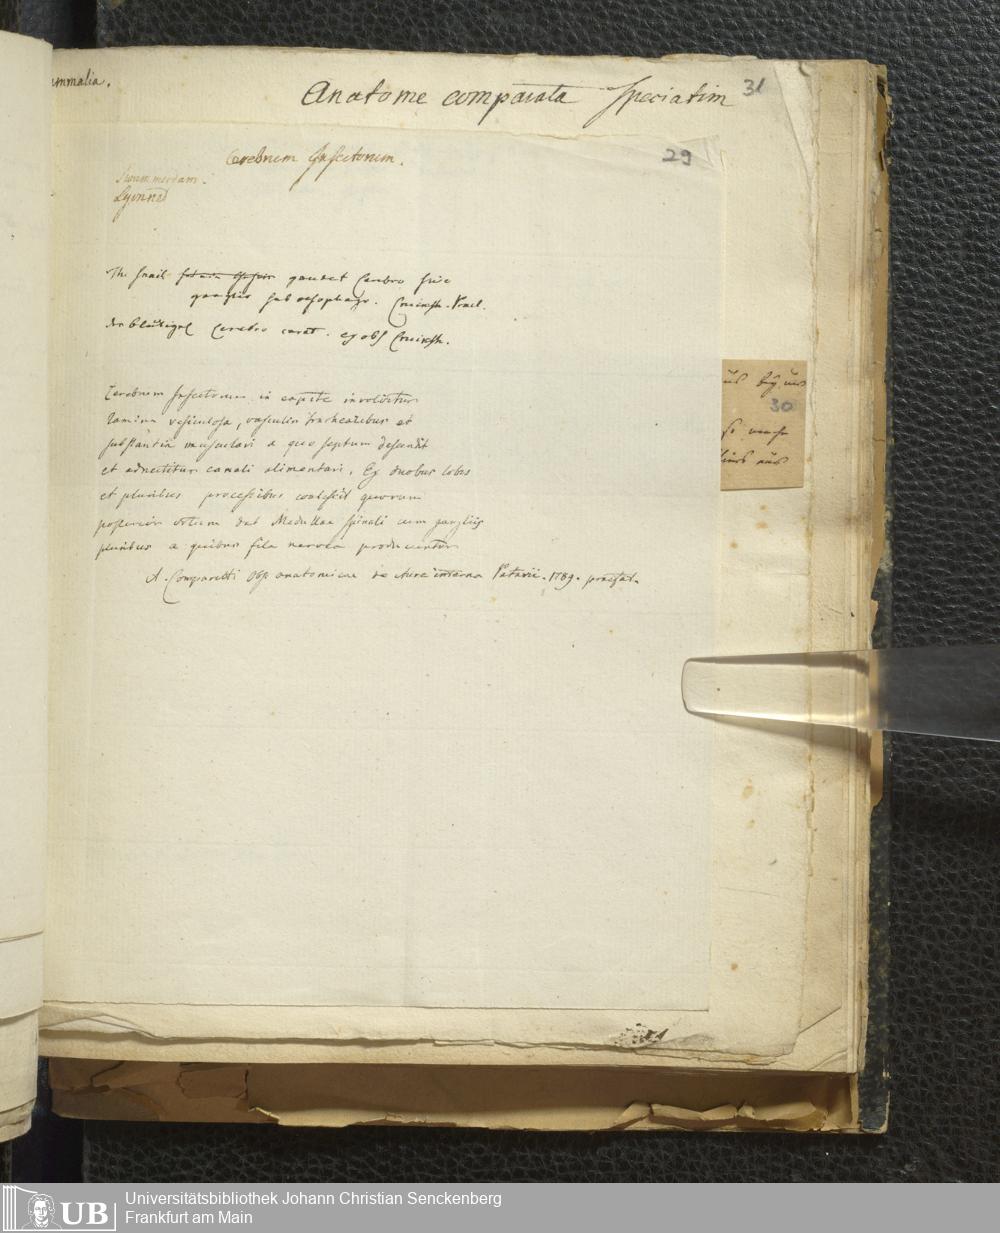 mmalia.
Anatome comparata speciatim
31
Cerebrum Insectorum.
29
Swammerdam.
Lyonnet
The snail gaudet Cerebro sive
ganglio sub oesophago. Cruiksh.
der blutigel cerebro caret. ex obs Cruiksh.
Cerebrum Insectorum in capite involvitur
lamina vesiculosa, vasculis trachealibus et
substantia musculari a quo septum descendit
et adnectitur canali alimentari. Ex duobus lobis
et pluribus processibus coalescit quorum
posterior ortum dat Medullae spinali cum gangliis
pluribus a quibus fila nervea producuntur
A. Comparetti Obs anatomicae de Aure interna Patavii. 1789. praefat.
30
Universitätsbibliothek Johann Christian Senckenberg
Frankfurt am Main
UB